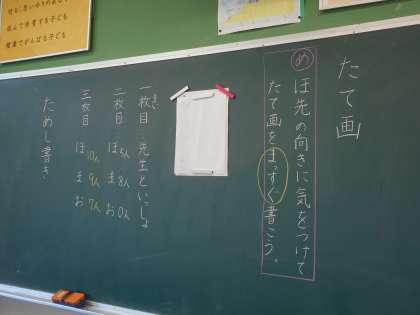 たて画
め
ほ先の向きに気をつけて
たて画をまっすぐ書こう。
一枚目…先生といっしょ
まい
二枚目…ほ5人 ま8人 お0人
三枚目…ほ10人 ま9人 お7人
ためし書き
進んで学習する子ども
健康でがんばる子ども